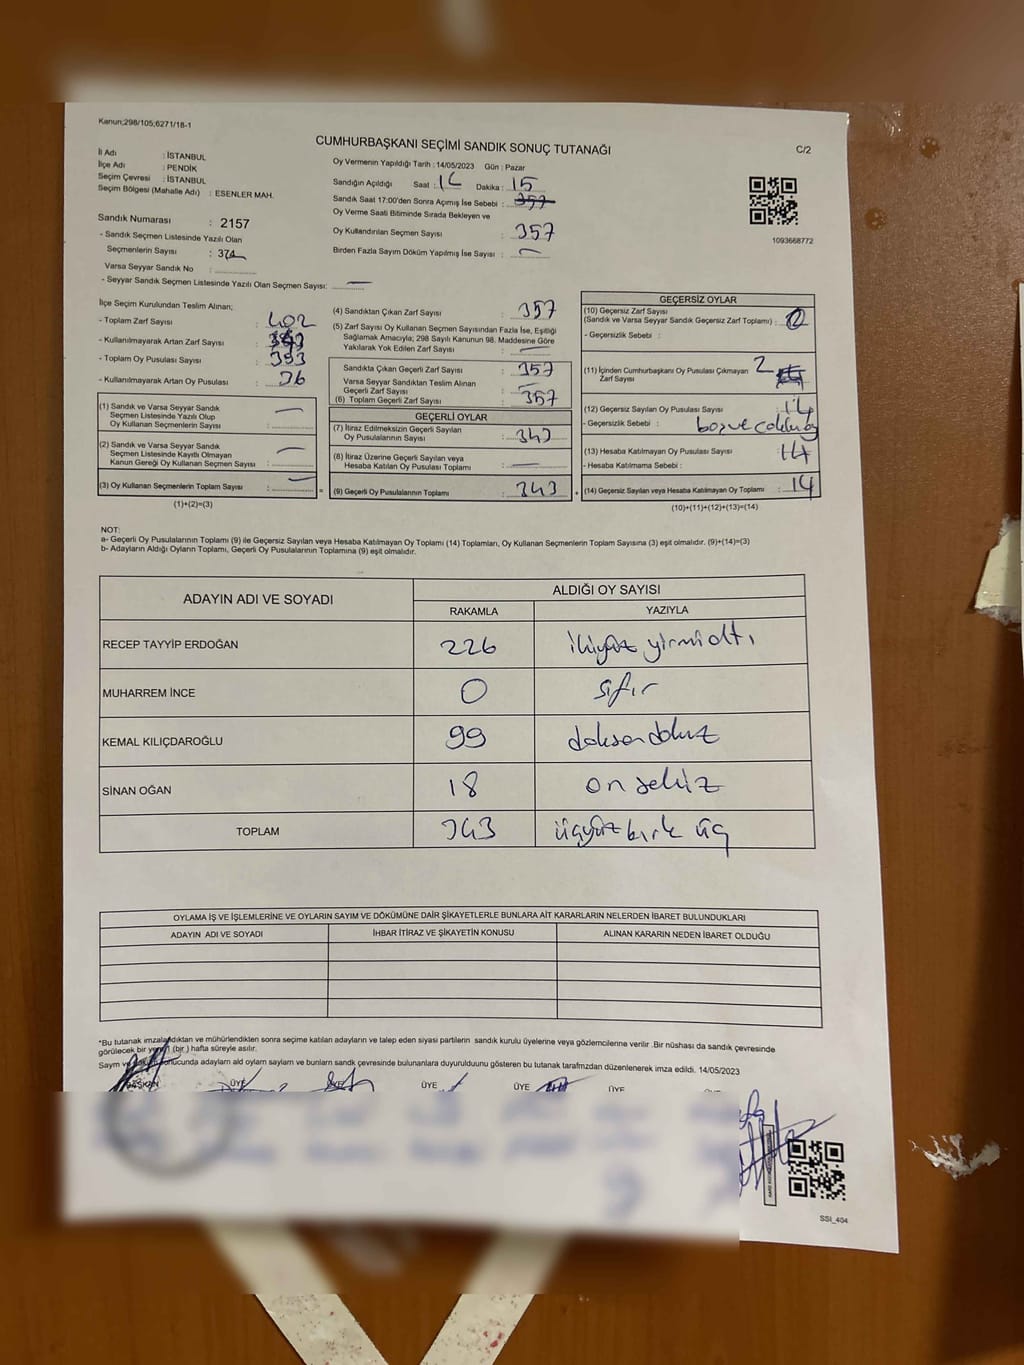 Kanun;298/105;6271/18-1
CUMHURBAŞKANI SEÇİMİ SANDIK SONUÇ TUTANAĞI
C/2
İl Adı : İSTANBUL
İlçe Adı : PENDİK
Seçim Çevresi : İSTANBUL
Seçim Bölgesi (Mahalle Adı) : ESENLER MAH.
Sandık Numarası : 2157
- Sandık Seçmen Listesinde Yazılı Olan
Seçmenlerin Sayısı : 374
Varsa Seyyar Sandık No :
- Seyyar Sandık Seçmen Listesinde Yazılı Olan Seçmen Sayısı: —
Oy Vermenin Yapıldığı Tarih : 14/05/2023 Gün : Pazar
Sandığın Açıldığı Saat : Dakika : 15
Sandık Saat 17:00'den Sonra Açımış İse Sebebi : 357
Oy Verme Saati Bitiminde Sırada Bekleyen ve
Oy Kullandırılan Seçmen Sayısı : 357
Birden Fazla Sayım Döküm Yapılmış İse Sayısı : —
1093668772
İlçe Seçim Kurulundan Teslim Alınan;
- Toplam Zarf Sayısı : 402
- Kullanılmayarak Artan Zarf Sayısı :
- Toplam Oy Pusulası Sayısı : 393
- Kullanılmayarak Artan Oy Pusulası : 36
(1) Sandık ve Varsa Seyyar Sandık
Seçmen Listesinde Yazılı Olup
Oy Kullanan Seçmenlerin Sayısı : —
(2) Sandık ve Varsa Seyyar Sandık
Seçmen Listesinde Kayıtlı Olmayan
Kanun Gereği Oy Kullanan Seçmen Sayısı : —
(3) Oy Kullanan Seçmenlerin Toplam Sayısı : —
(1)+(2)=(3)
(4) Sandıktan Çıkan Zarf Sayısı : 357
(5) Zarf Sayısı Oy Kullanan Seçmen Sayısından Fazla İse, Eşitliği
Sağlamak Amacıyla; 298 Sayılı Kanunun 98. Maddesine Göre
Yakılarak Yok Edilen Zarf Sayısı : —
Sandıkta Çıkan Geçerli Zarf Sayısı : 357
Varsa Seyyar Sandıktan Teslim Alınan
Geçerli Zarf Sayısı : —
(6) Toplam Geçerli Zarf Sayısı : 357
GEÇERLİ OYLAR
(7) İtiraz Edilmeksizin Geçerli Sayılan
Oy Pusulalarının Sayısı : 343
(8) İtiraz Üzerine Geçerli Sayılan veya
Hesaba Katılan Oy Pusulası Toplamı : —
(9) Geçerli Oy Pusulalarının Toplamı : 343
GEÇERSİZ OYLAR
(10) Geçersiz Zarf Sayısı
(Sandık ve Varsa Seyyar Sandık Geçersiz Zarf Toplamı) :
- Geçersizlik Sebebi :
(11) İçinden Cumhurbaşkanı Oy Pusulası Çıkmayan 2
Zarf Sayısı
(12) Geçersiz Sayılan Oy Pusulası Sayısı :
- Geçersizlik Sebebi : boş ve
(13) Hesaba Katılmayan Oy Pusulası Sayısı : 14
- Hesaba Katılmama Sebebi :
(14) Geçersiz Sayılan veya Hesaba Katılmayan Oy Toplamı : 14
(10)+(11)+(12)+(13)=(14)
NOT:
a- Geçerli Oy Pusulalarının Toplamı (9) ile Geçersiz Sayılan veya Hesaba Katılmayan Oy Toplamı (14) Toplamları, Oy Kullanan Seçmenlerin Toplam Sayısına (3) eşit olmalıdır. (9)+(14)=(3)
b- Adayların Aldığı Oyların Toplamı, Geçerli Oy Pusulalarının Toplamına (9) eşit olmalıdır.
ADAYIN ADI VE SOYADI
ALDIĞI OY SAYISI
RAKAMLA YAZIYLA
RECEP TAYYİP ERDOĞAN 226 ikiyüz yirmi altı
MUHARREM İNCE 0 sıfır
KEMAL KILIÇDAROĞLU 99 doksan dokuz
SİNAN OĞAN 18 on sekiz
TOPLAM 343 üçyüz kırk üç
OYLAMA İŞ VE İŞLEMLERİNE VE OYLARIN SAYIM VE DÖKÜMÜNE DAİR ŞİKAYETLERLE BUNLARA AİT KARARLARIN NELERDEN İBARET BULUNDUKLARI
ADAYIN ADI VE SOYADI İHBAR İTİRAZ VE ŞİKAYETİN KONUSU ALINAN KARARIN NEDEN İBARET OLDUĞU
*Bu tutanak imzalandıktan ve mühürlendikten sonra seçime katılan adayların ve talep eden siyasi partilerin sandık kurulu üyelerine veya gözlemcilerine verilir .Bir nüshası da sandık çevresinde
görülecek bir yere 1 (bir ) hafta süreyle asılır.
Sayım ve döküm sonucunda adayların ald oyların sayların ve bunların sandk çevresinde bulunanlara duyurulduunu gösteren bu tutanak tarafmzdan düzenlenerek imza edildi. 14/05/2023
BAŞKAN ÜYE ÜYE ÜYE ÜYE ÜYE ÜYE
SSI_404